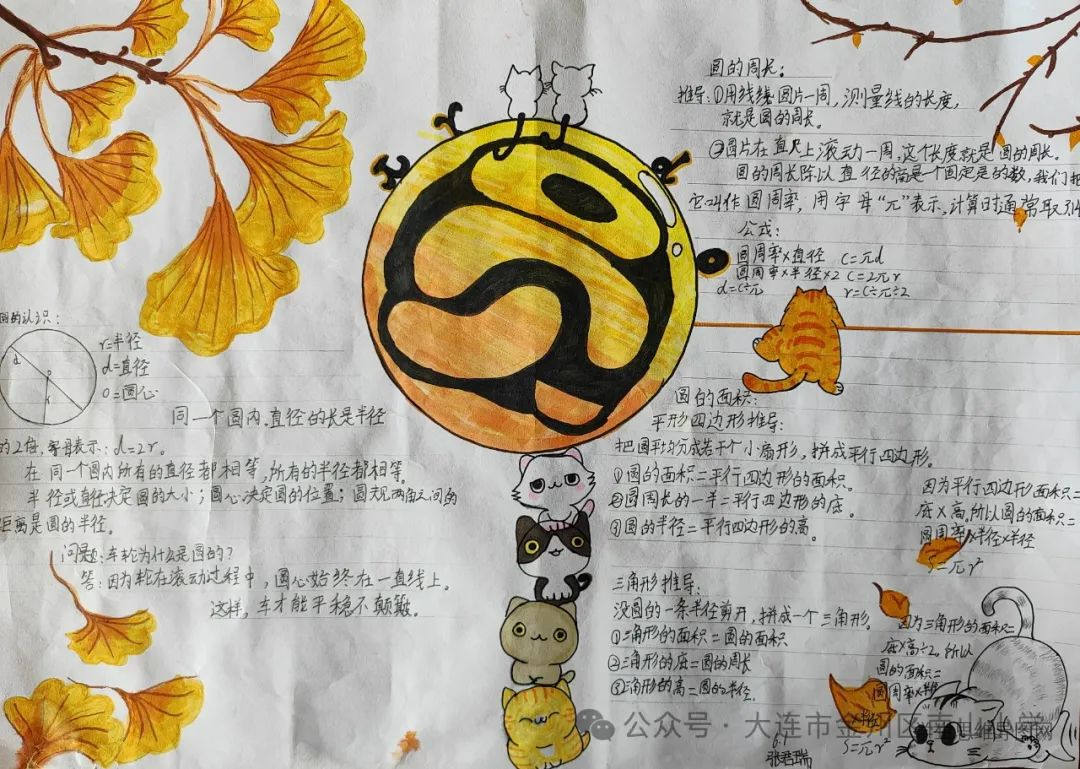 圆的认识：
r=半径
d=直径
o=圆心
d
o
r
同一个圆内．直径的长是半径
的2倍，字母表示：d=2r。
在同一个圆内所有的直径都相等，所有的半径都相等。
半径或直径决定圆的大小；圆心决定圆的位置；圆规两角之间的
距离是圆的半径。
问题：车轮为什么是圆的？
答：因为轮在滚动过程中，圆心始终在一直线上。
这样，车才能平稳不颠簸。
圆的周长：
推导：①用线绕圆片一周，测量线的长度，
就是圆的周长。
②圆片在直尺上滚动一周，这个长度就是圆的周长。
圆的周长除以直径的商是一个固定的数，我们把
它叫作圆周率，用字母“π”表示，计算时通常取3.14
公式：
圆周率×直径 C=πd
圆周率×半径×2 C=2πr
d=C÷π r=C÷π÷2
圆的面积：
平形四边形推导：
把圆平均分成若干个小扇形，拼成平行四边形。
①圆的面积=平行四边形的面积。
②圆周长的一半=平行四边形的底。
③圆的半径=平行四边形的高。
因为平行四边形面积=
底×高，所以圆的面积=
圆周率×半径×半径
S=πr²
三角形推导：
没圆的一条半径剪开，拼成一个三角形。
①三角形的面积=圆的面积
②三角形的底=圆的周长
③三角形的高=圆的半径．
因为三角形的面积=
底×高÷2，所以
圆的面积=
圆周率×半径
×半径
S=πr²
6.1
张君瑞
公众号 · 大连市金州区南